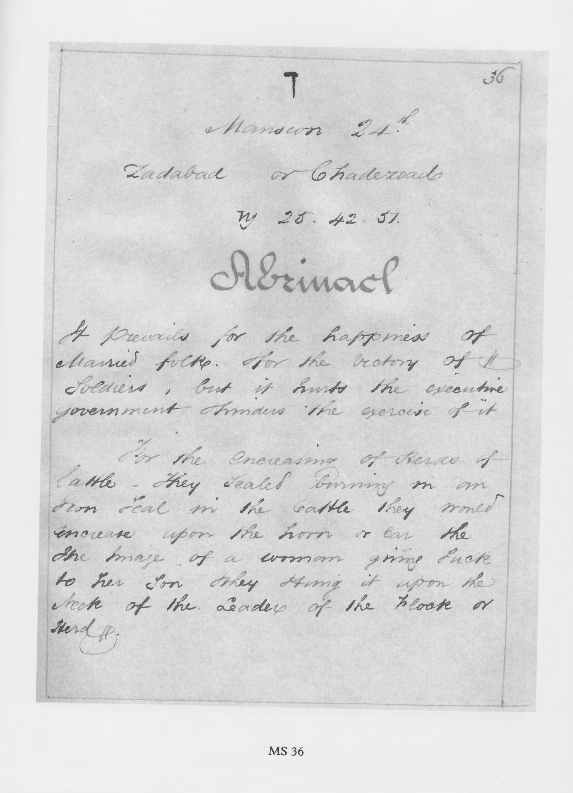 36
Mansion 24th
Zadabad or Chadezoad
25. 42. 51.
Abrinael
It Prevails for the happiness of
Married folk. for the Victory of
Soldiers, but it hurts the executive
government & hinders the exercise of it
For the encreasing of Herds of
Cattle - They Sealed Burning in an
Iron Seal in the Cattle they would
encrease upon the horn or ear the
The Image of a woman giving Suck
to her Son & they Hung it upon the
Neck of the Leader of the Flock or
Herd
MS 36